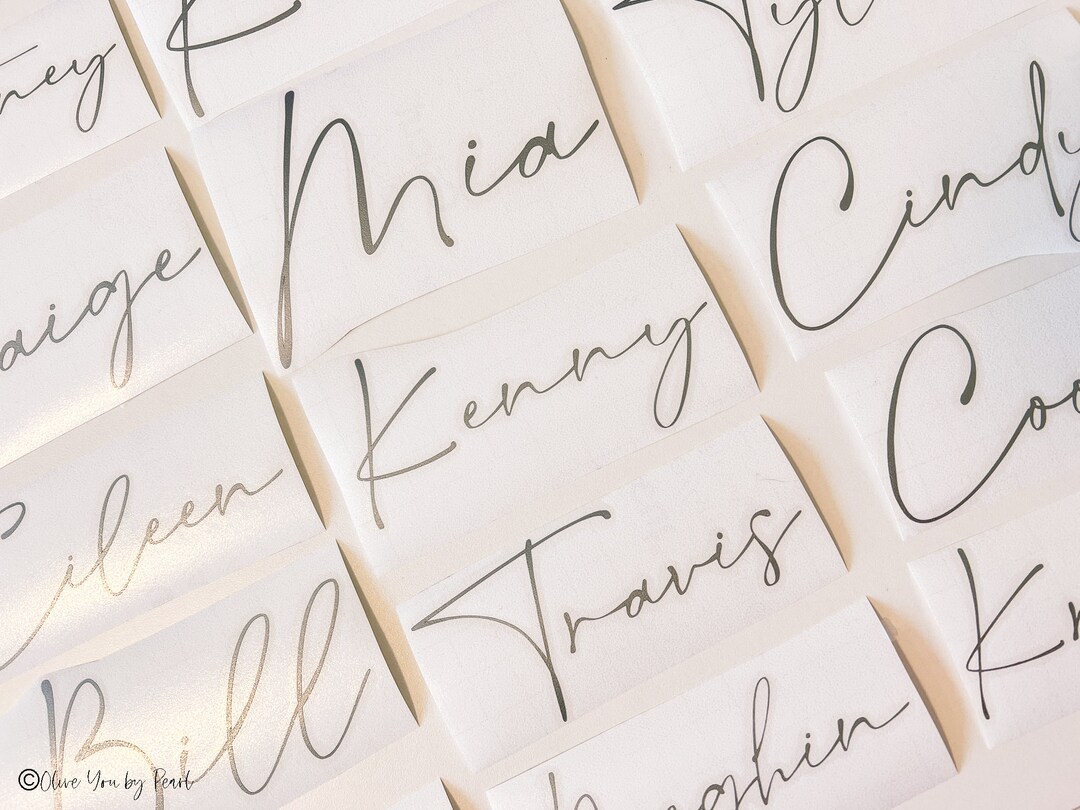 ney
K
Ty
Mia
Cindy
aige
Kenny
Coo
Eileen
Travis
Kr
Bill
ghin
©Olive You by Pearl